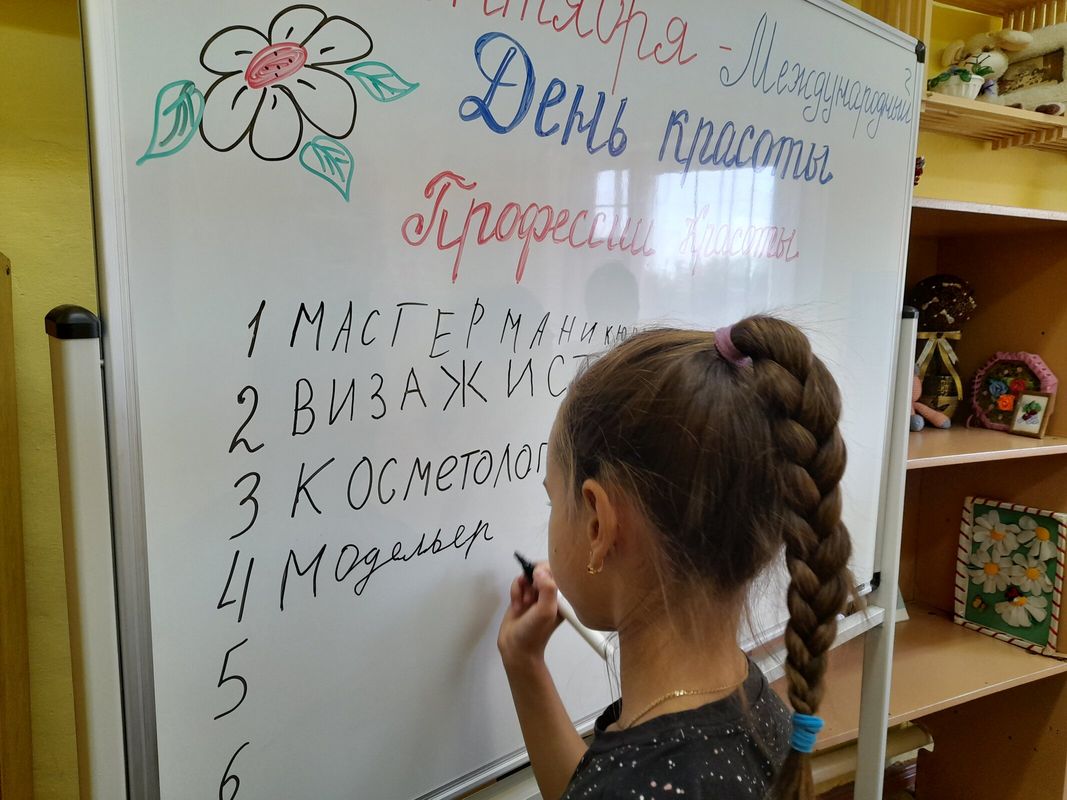 нтября - Международный
День красоты
Профессии Красоты
1 МАСТЕР МАНИКЮ
2 ВИЗАЖИСТ
3 КОСМЕТОЛОГ
4 Модельер
5
6